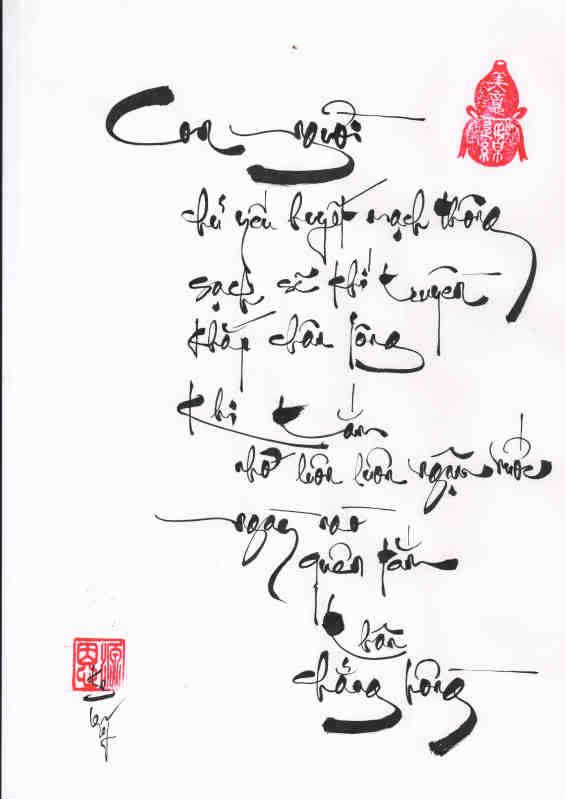 Con người
chủ yếu huyết mạch thông
sạch sẽ khí truyền
khắp châu lông
Khi tắm
nhớ luôn luôn ngậm nước
ngày nào
quên tắm
bẩn
chẳng hồng